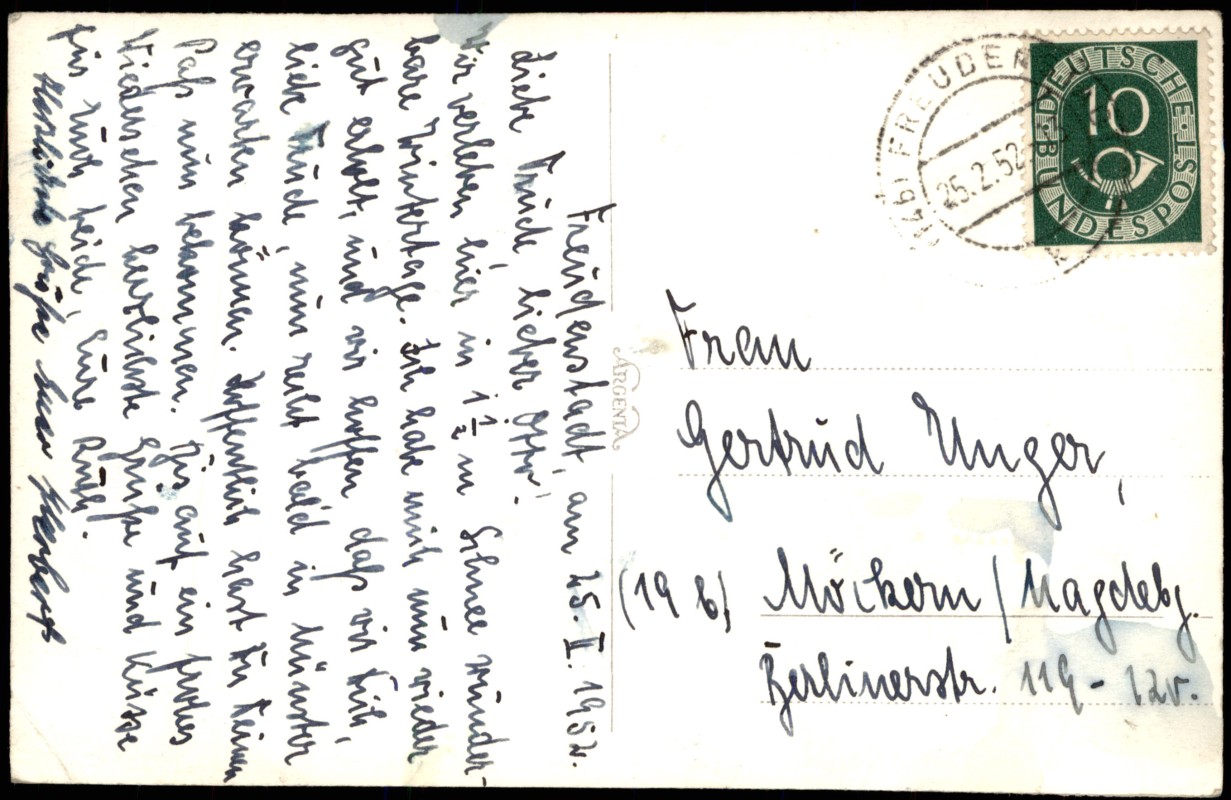 Freudenstadt, am 25. II. 1952.
Liebe Trude, lieber Otto!
Wir verleben hier in 1 1/2 m Schnee wunder-
bare Wintertage. Ich habe mich nun wieder
gut erholt, und wir hoffen daß wir Dich,
liebe Trude, nun recht bald in Münster
erwarten können. Hoffentlich hast Du Deinen
Paß nun bekommen. Bis auf ein frohes
Wiedersehen herzlichste Grüße und Küsse
für Euch beide, Eure Ruth.
Herzliche Grüße Euer
ARGENTA
(17b) FREUDEN
25.2.52
DEUTSCHE BUNDESPOST
10
Frau
Gertrud Unger,
(19 b) Möckern / Magdebg.
Berlinerstr. 119 - 120.